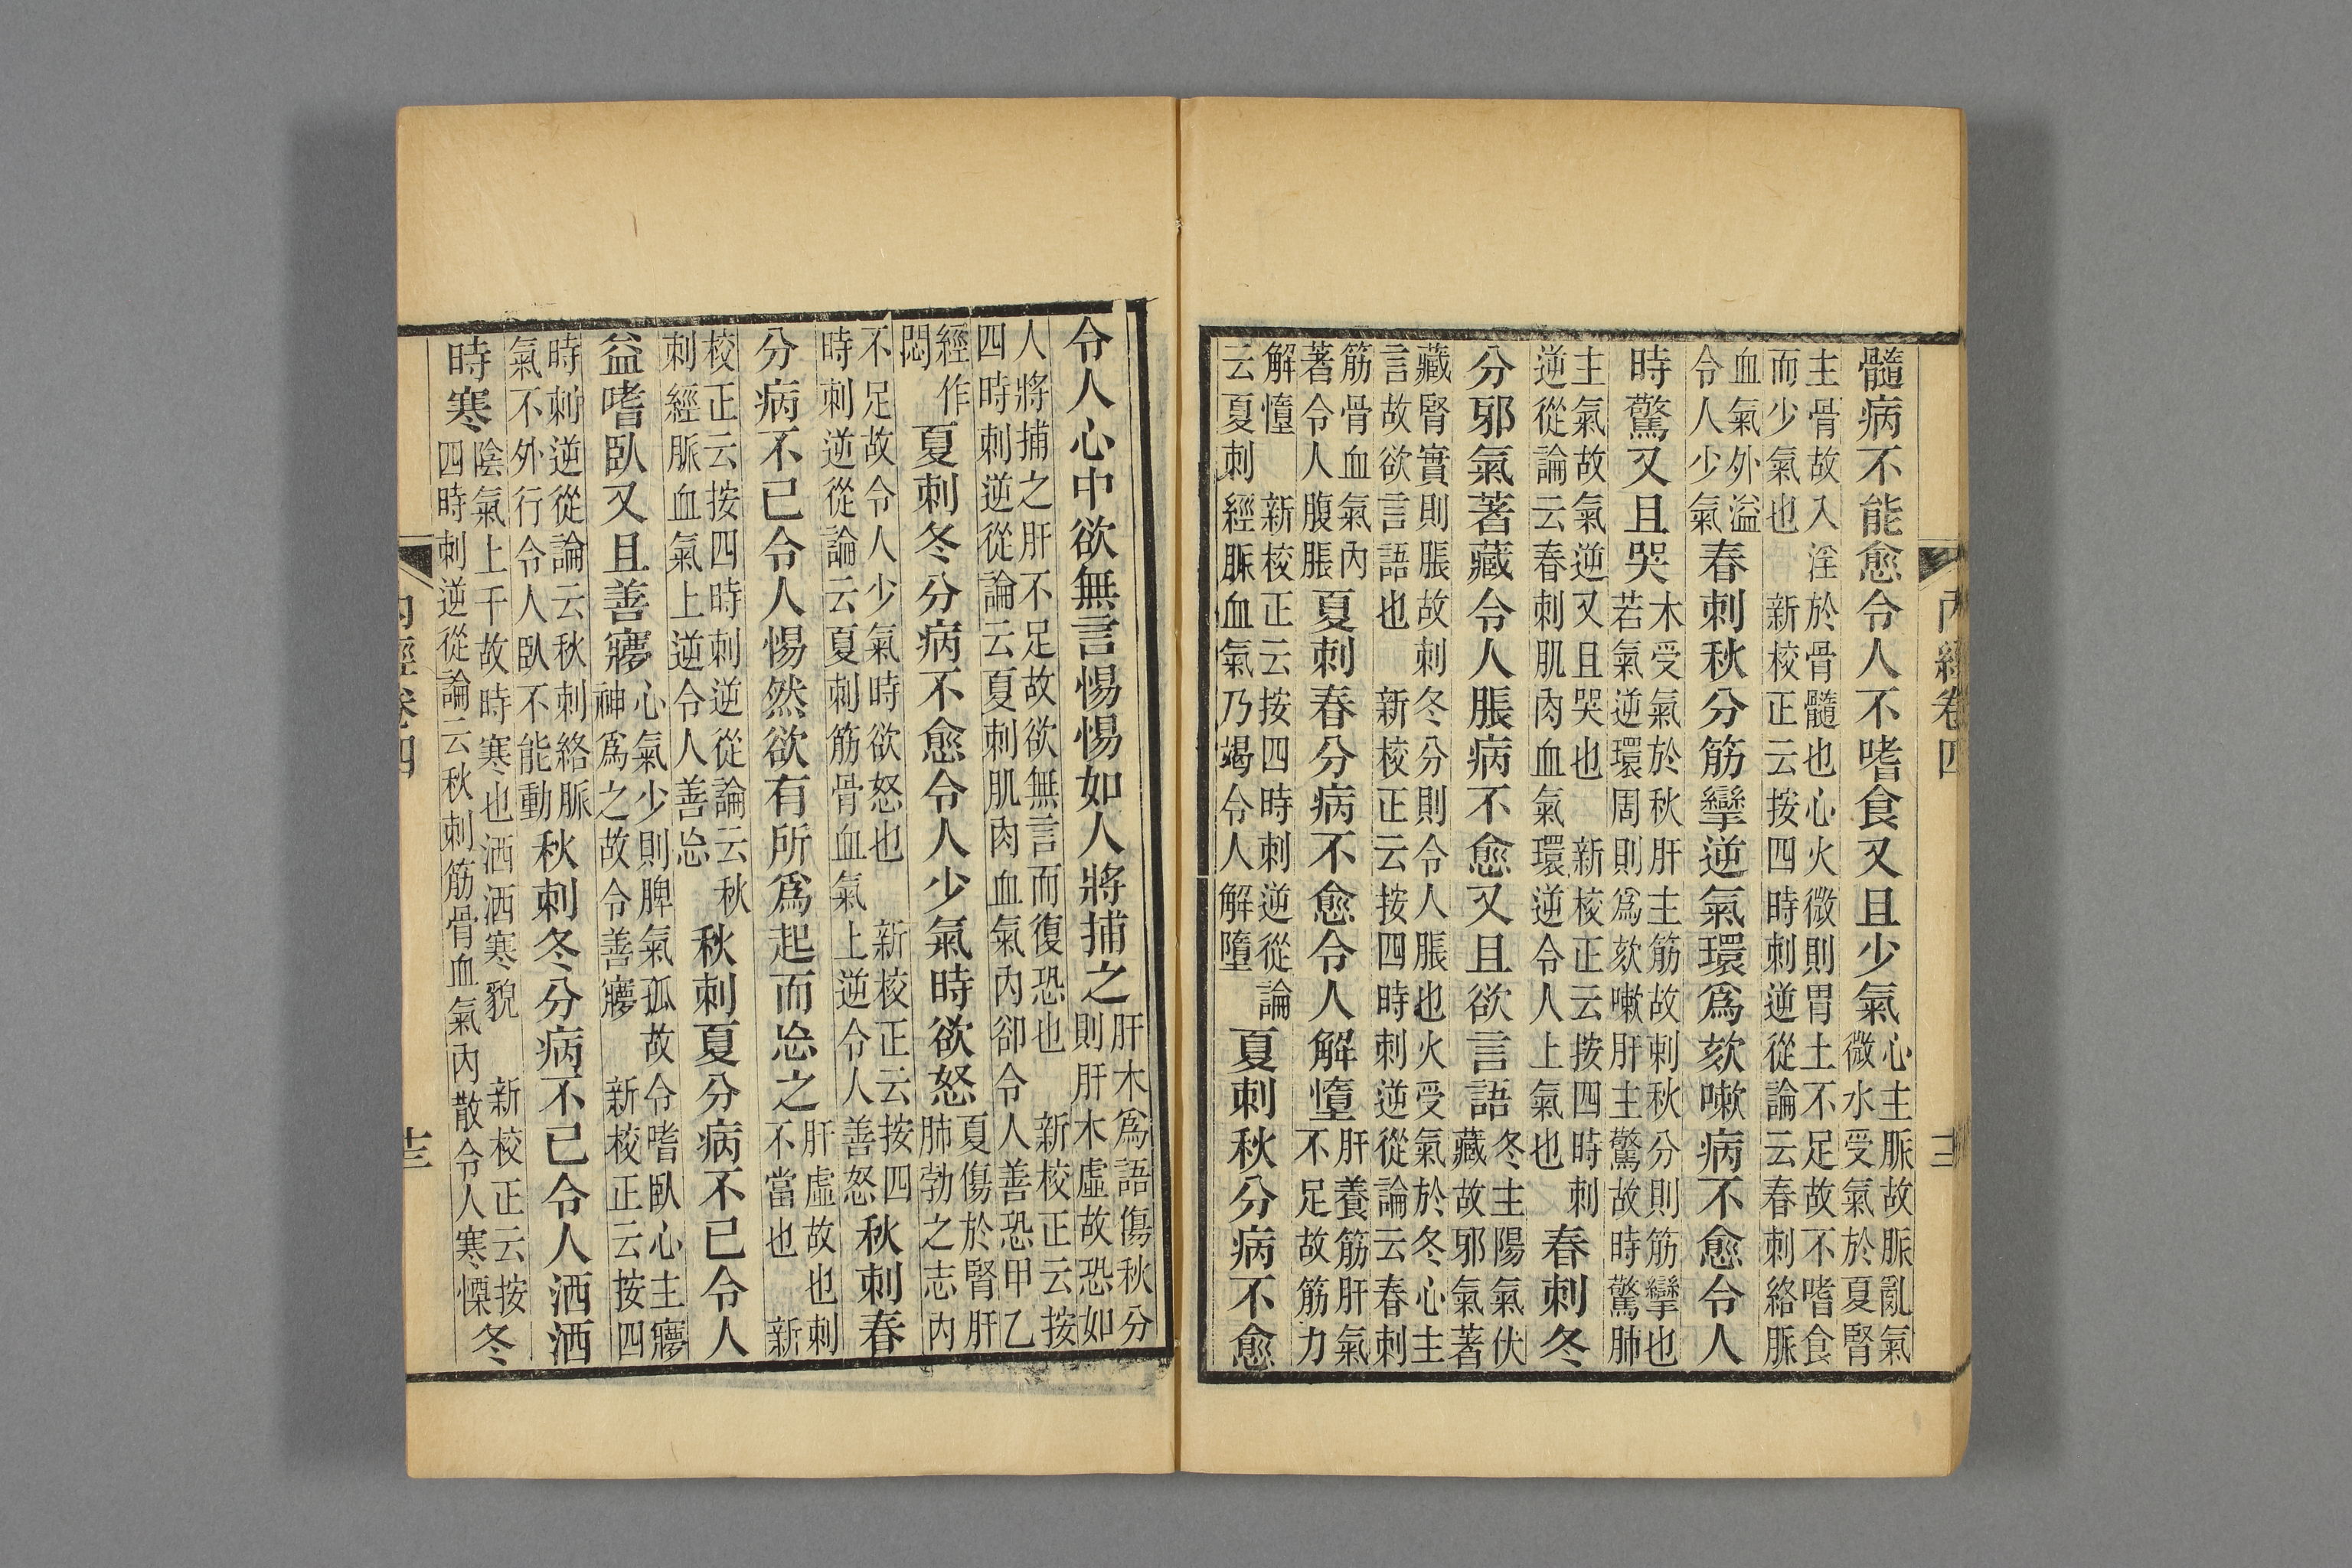 內經卷四
髓病不能愈令人不嗜食又且少氣
心主脈故脈亂氣
微水受氣於夏腎
主骨故入淫於骨髓也心火微則胃土不足故不嗜食
而少氣也 新校正云按四時刺逆從論云春刺絡脈
血氣外溢
令人少氣
春刺秋分筋攣逆氣環爲欬嗽病不愈令人
時驚又且哭
木受氣於秋肝主筋故刺秋分則筋攣也
若氣逆環周則爲欬嗽肝主驚故時驚肺
主氣故氣逆又且哭也 新校正云按四時刺
逆從論云春刺肌肉血氣環逆令人上氣也
春刺冬
分邪氣著藏令人脹病不愈又且欲言語
冬主陽氣伏
藏故邪氣著
藏腎實則脹故刺冬分則令人脹也火受氣於冬心主
言故欲言語也 新校正云按四時刺逆從論云春刺
筋骨血氣內
著令人腹脹
夏刺春分病不愈令人解憜
肝養筋肝氣
不足故筋力
解憜 新校正云按四時刺逆從論
云夏刺經脈血氣乃竭令人解墮
夏刺秋分病不愈
令人心中欲無言惕惕如人將捕之
肝木爲語傷秋分
則肝木虛故恐如
人將捕之肝不足故欲無言而復恐也 新校正云按
四時刺逆從論云夏刺肌肉血氣內卻令人善恐甲乙
經作
悶
夏刺冬分病不愈令人少氣時欲怒
夏傷於腎肝
肺勃之志內
不足故令人少氣時欲怒也 新校正云按四
時刺逆從論云夏刺筋骨血氣上逆令人善怒
秋刺春
分病不已令人惕然欲有所爲起而忘之
肝虛故也刺
不當也 新
校正云按四時刺逆從論云秋
刺經脈血氣上逆令人善忘
秋刺夏分病不已令人
益嗜臥又且善㝱
心氣少則脾氣孤故令嗜臥心主㝱
神爲之故令善㝱 新校正云按四
時刺逆從論云秋刺絡脈
氣不外行令人臥不能動
秋刺冬分病不已令人洒洒
時寒
陰氣上干故時寒也洒洒寒貌 新校正云按
四時刺逆從論云秋刺筋骨血氣內散令人寒慄
冬
內經卷四